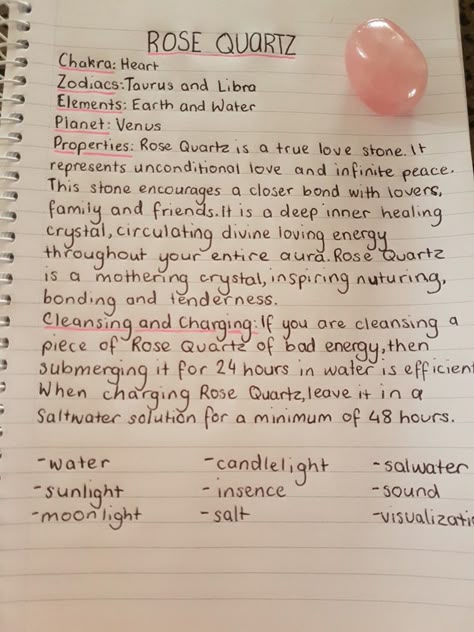 ROSE QUARTZ
Chakra: Heart
Zodiacs: Taurus and Libra
Elements: Earth and Water
Planet: Venus
Properties: Rose Quartz is a true love stone. It
represents unconditional love and infinite peace.
This stone encourages a closer bond with lovers,
family and friends. It is a deep inner healing
crystal, circulating divine loving energy
throughout your entire aura. Rose Quartz
is a mothering crystal, inspiring nuturing,
bonding and tenderness.
Cleansing and Charging: If you are cleansing a
piece of Rose Quartz of bad energy, then
submerging it for 24 hours in water is efficient
When charging Rose Quartz, leave it in a
Saltwater solution for a minimum of 48 hours.
-water -candlelight -salwater
-sunlight -insence -sound
-moonlight -salt -visualizatio